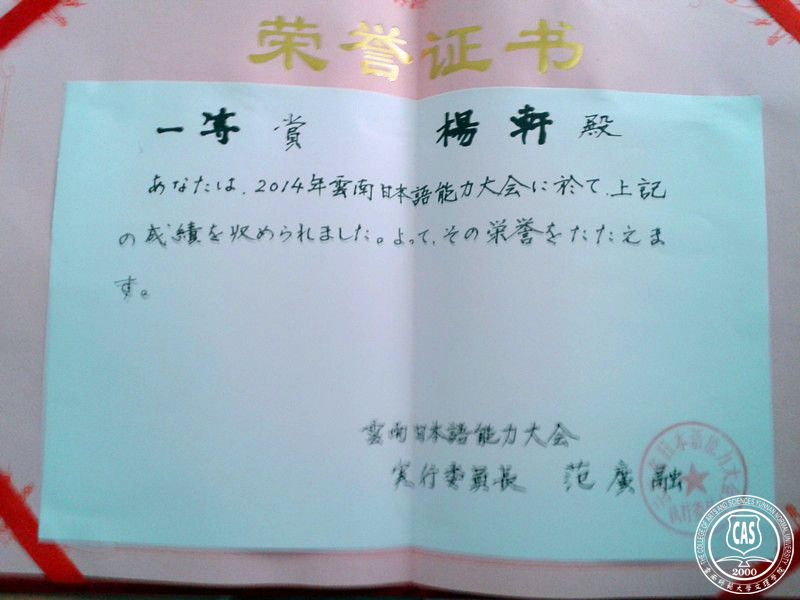 荣誉证书
一等賞 楊軒殿
あなたは、2014年雲南日本語能力大会に於て、上記
の成績を収められました。よって、その栄誉をたたえま
す。
雲南日本語能力大会
実行委員長 范廣融
CAS
2000
THE COLLEGE OF ARTS AND SCIENCES YUNNAN NORMAL UNIVERSITY
云南师范大学文理学院